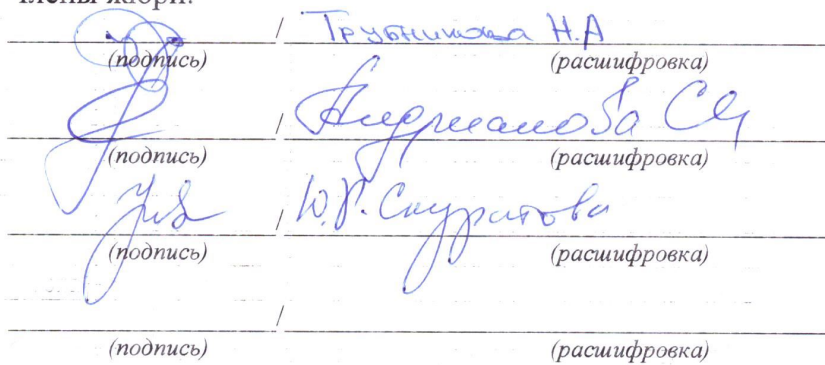 Члены жюри:
/ Трубникова Н.А
(подпись) (расшифровка)
/ Андрианова СЯ
(подпись) (расшифровка)
/ Ю.В. Скуратова
(подпись) (расшифровка)
/
(подпись) (расшифровка)